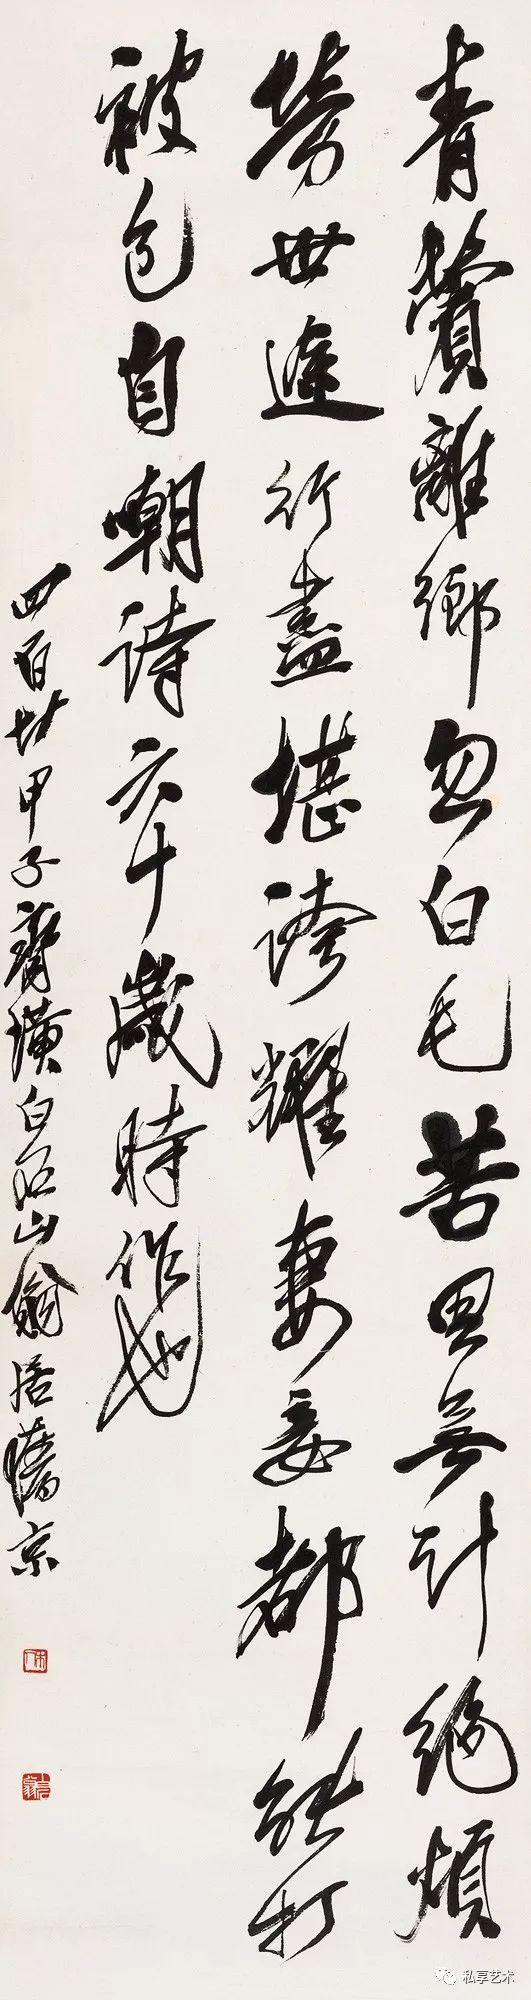 青鬢離鄉忽白毛苦思無計絕煩
勞世途行盡堪誇耀妻妾都能打
被包自嘲詩六十歲時作也
四百廿甲子齊璜白石山翁居舊京
私享艺术